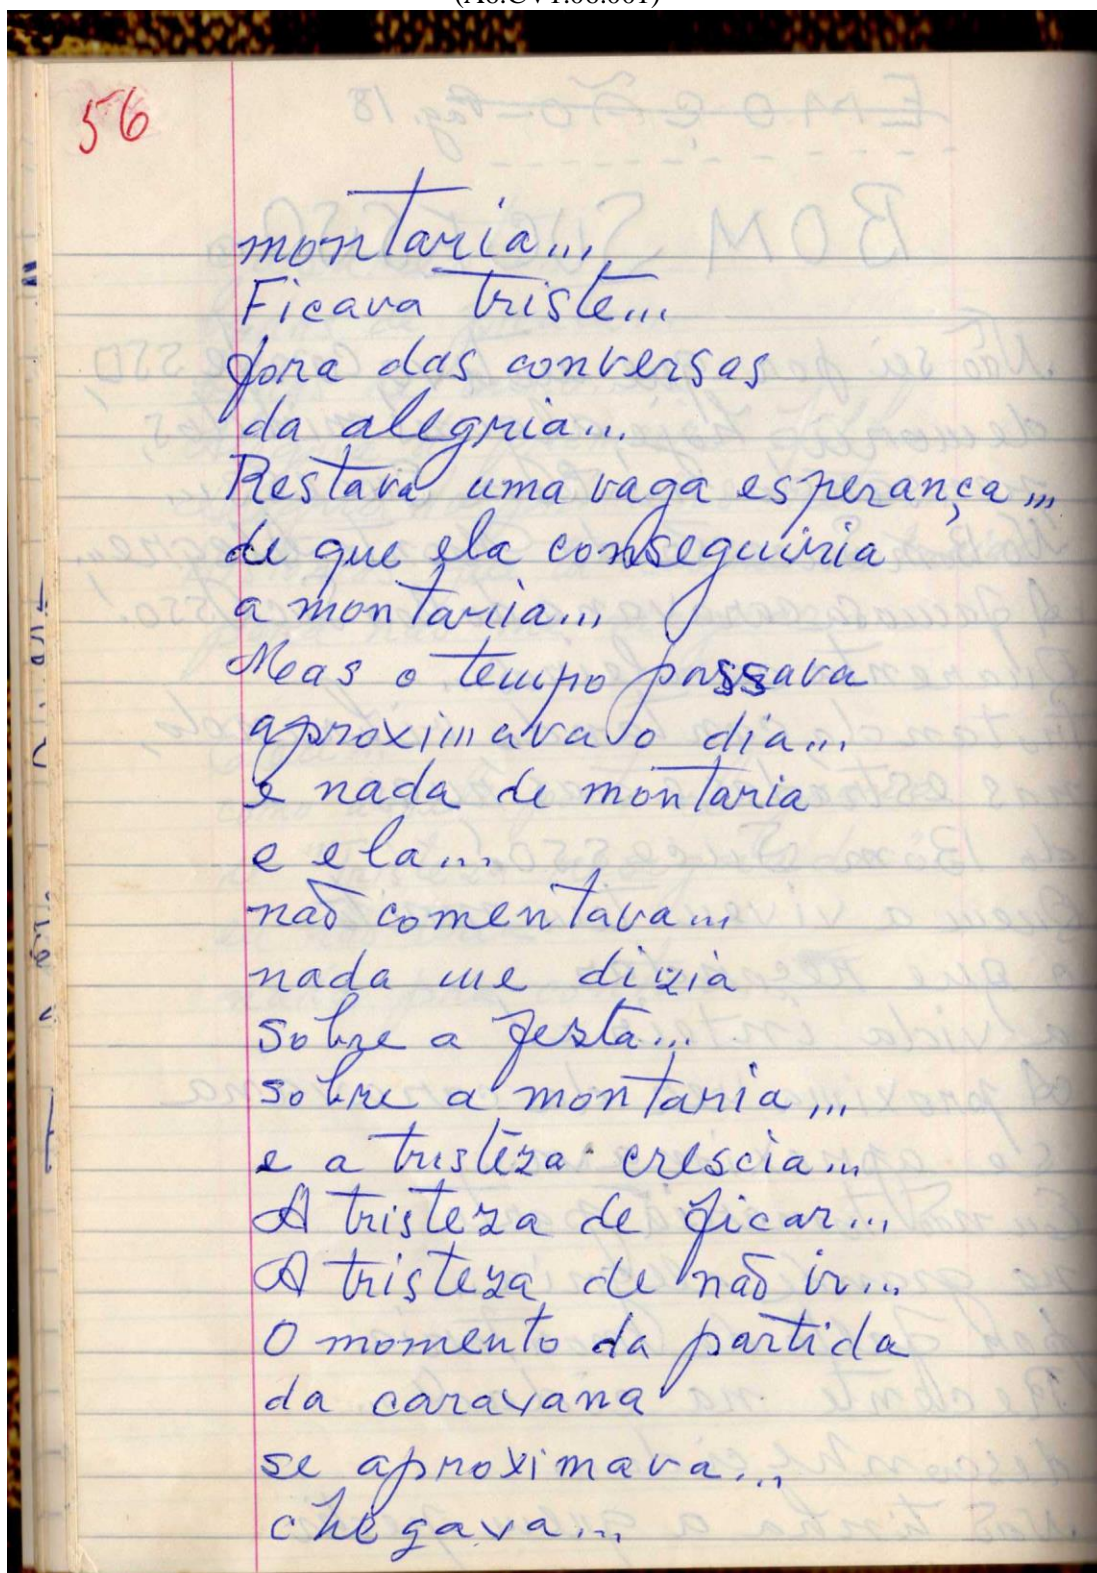 56
montaria...
Ficava triste...
fora das conversas
da alegria...
Restava uma vaga esperança...
de que ela conseguiria
a montaria...
Mas o tempo passava
aproximava o dia...
e nada de montaria
e ela...
não comentava...
nada me dizia
sobre a festa...
sobre a montaria...
e a tristeza crescia...
A tristeza de ficar...
A tristeza de não ir...
O momento da partida
da caravana
se aproximava...
chegava...